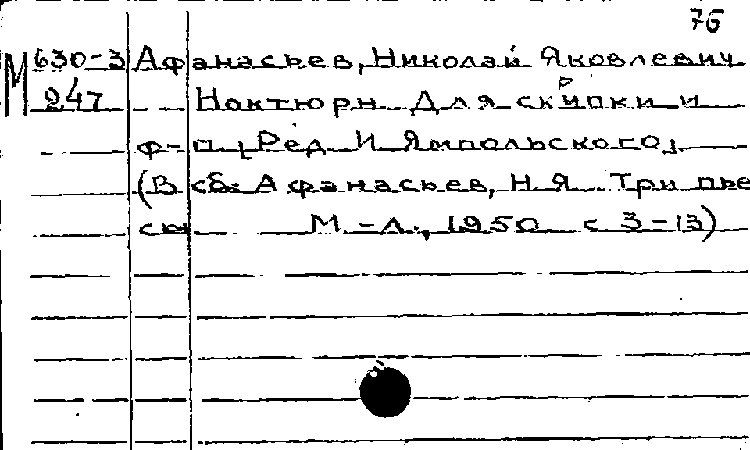 76
М 630-3 Афанасьев, Николай Яковлевич
247 Ноктюрн. Для скрипки и
ф-п. [Ред. И. Ямпольского]
(В сб: Афанасьев, Н. Я. Три пье
сы М.-Л., 1950 с 3-13)